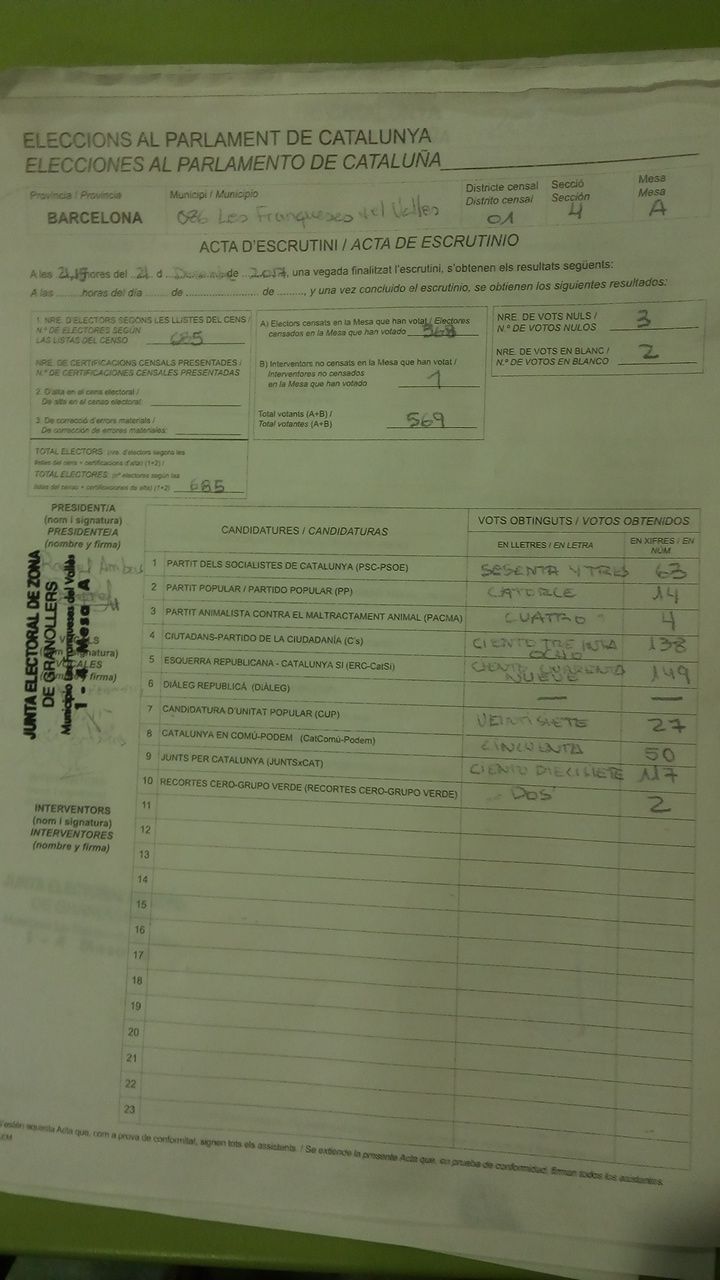 ELECCIONS AL PARLAMENT DE CATALUNYA
ELECCIONES AL PARLAMENTO DE CATALUÑA
Província / Provincia
BARCELONA
Municipi / Municipio
086 Les Franqueses del Vallès
Districte censal
Distrito censal
01
Secció
Sección
4
Mesa
Mesa
A
ACTA D'ESCRUTINI / ACTA DE ESCRUTINIO
A les 21,15 hores del 21 d. de 2017, una vegada finalitzat l'escrutini, s'obtenen els resultats següents:
A las ........ horas del día ........ de ........ de ........, y una vez concluido el escrutinio, se obtienen los siguientes resultados:
1. NRE. D'ELECTORS SEGONS LES LLISTES DEL CENS /
N.º DE ELECTORES SEGÚN
LAS LISTAS DEL CENSO 685
NRE. DE CERTIFICACIONS CENSALS PRESENTADES /
N.º DE CERTIFICACIONES CENSALES PRESENTADAS
2. D'alta en el cens electoral /
De alta en el censo electoral:
3. De correcció d'errors materials /
De corrección de errores materiales:
TOTAL ELECTORS: (nre. d'electors segons les
llistes del cens + certificacions d'alta) (1+2) /
TOTAL ELECTORES: (nº electores según las
listas del censo + certificaciones de alta) (1+2) 685
A) Electors censats en la Mesa que han votat / Electores
censados en la Mesa que han votado 568
B) Interventors no censats en la Mesa que han votat /
Interventores no censados
en la Mesa que han votado 1
Total votants (A+B) /
Total votantes (A+B) 569
NRE. DE VOTS NULS /
N.º DE VOTOS NULOS 3
NRE. DE VOTS EN BLANC /
N.º DE VOTOS EN BLANCO 2
PRESIDENT/A
(nom i signatura)
PRESIDENTE/A
(nombre y firma)
JUNTA ELECTORAL DE ZONA
DE GRANOLLERS
Municipio Les Franqueses del Vallès
1 - 4 Mesa A
INTERVENTORS
(nom i signatura)
INTERVENTORES
(nombre y firma)
CANDIDATURES / CANDIDATURAS
VOTS OBTINGUTS / VOTOS OBTENIDOS
EN LLETRES / EN LETRA
EN XIFRES / EN NÚM
1 PARTIT DELS SOCIALISTES DE CATALUNYA (PSC-PSOE) SESENTA Y TRES 63
2 PARTIT POPULAR / PARTIDO POPULAR (PP) CATORCE 14
3 PARTIT ANIMALISTA CONTRA EL MALTRACTAMENT ANIMAL (PACMA) CUATRO 4
4 CIUTADANS-PARTIDO DE LA CIUDADANÍA (C's) CIENTO TREINTA OCHO 138
5 ESQUERRA REPUBLICANA - CATALUNYA SÍ (ERC-CatSí) CIENTO CUARENTA NUEVE 149
6 DIÀLEG REPUBLICÀ (DIÀLEG) — —
7 CANDIDATURA D'UNITAT POPULAR (CUP) VEINTISIETE 27
8 CATALUNYA EN COMÚ-PODEM (CatComú-Podem) CINCUENTA 50
9 JUNTS PER CATALUNYA (JUNTSxCAT) CIENTO DIECISIETE 117
10 RECORTES CERO-GRUPO VERDE (RECORTES CERO-GRUPO VERDE) DOS 2
11
12
13
14
15
16
17
18
19
20
21
22
23
S'estén aquesta Acta que, com a prova de conformitat, signen tots els assistents. / Se extiende la presente Acta que, en prueba de conformidad, firman todos los asistentes.